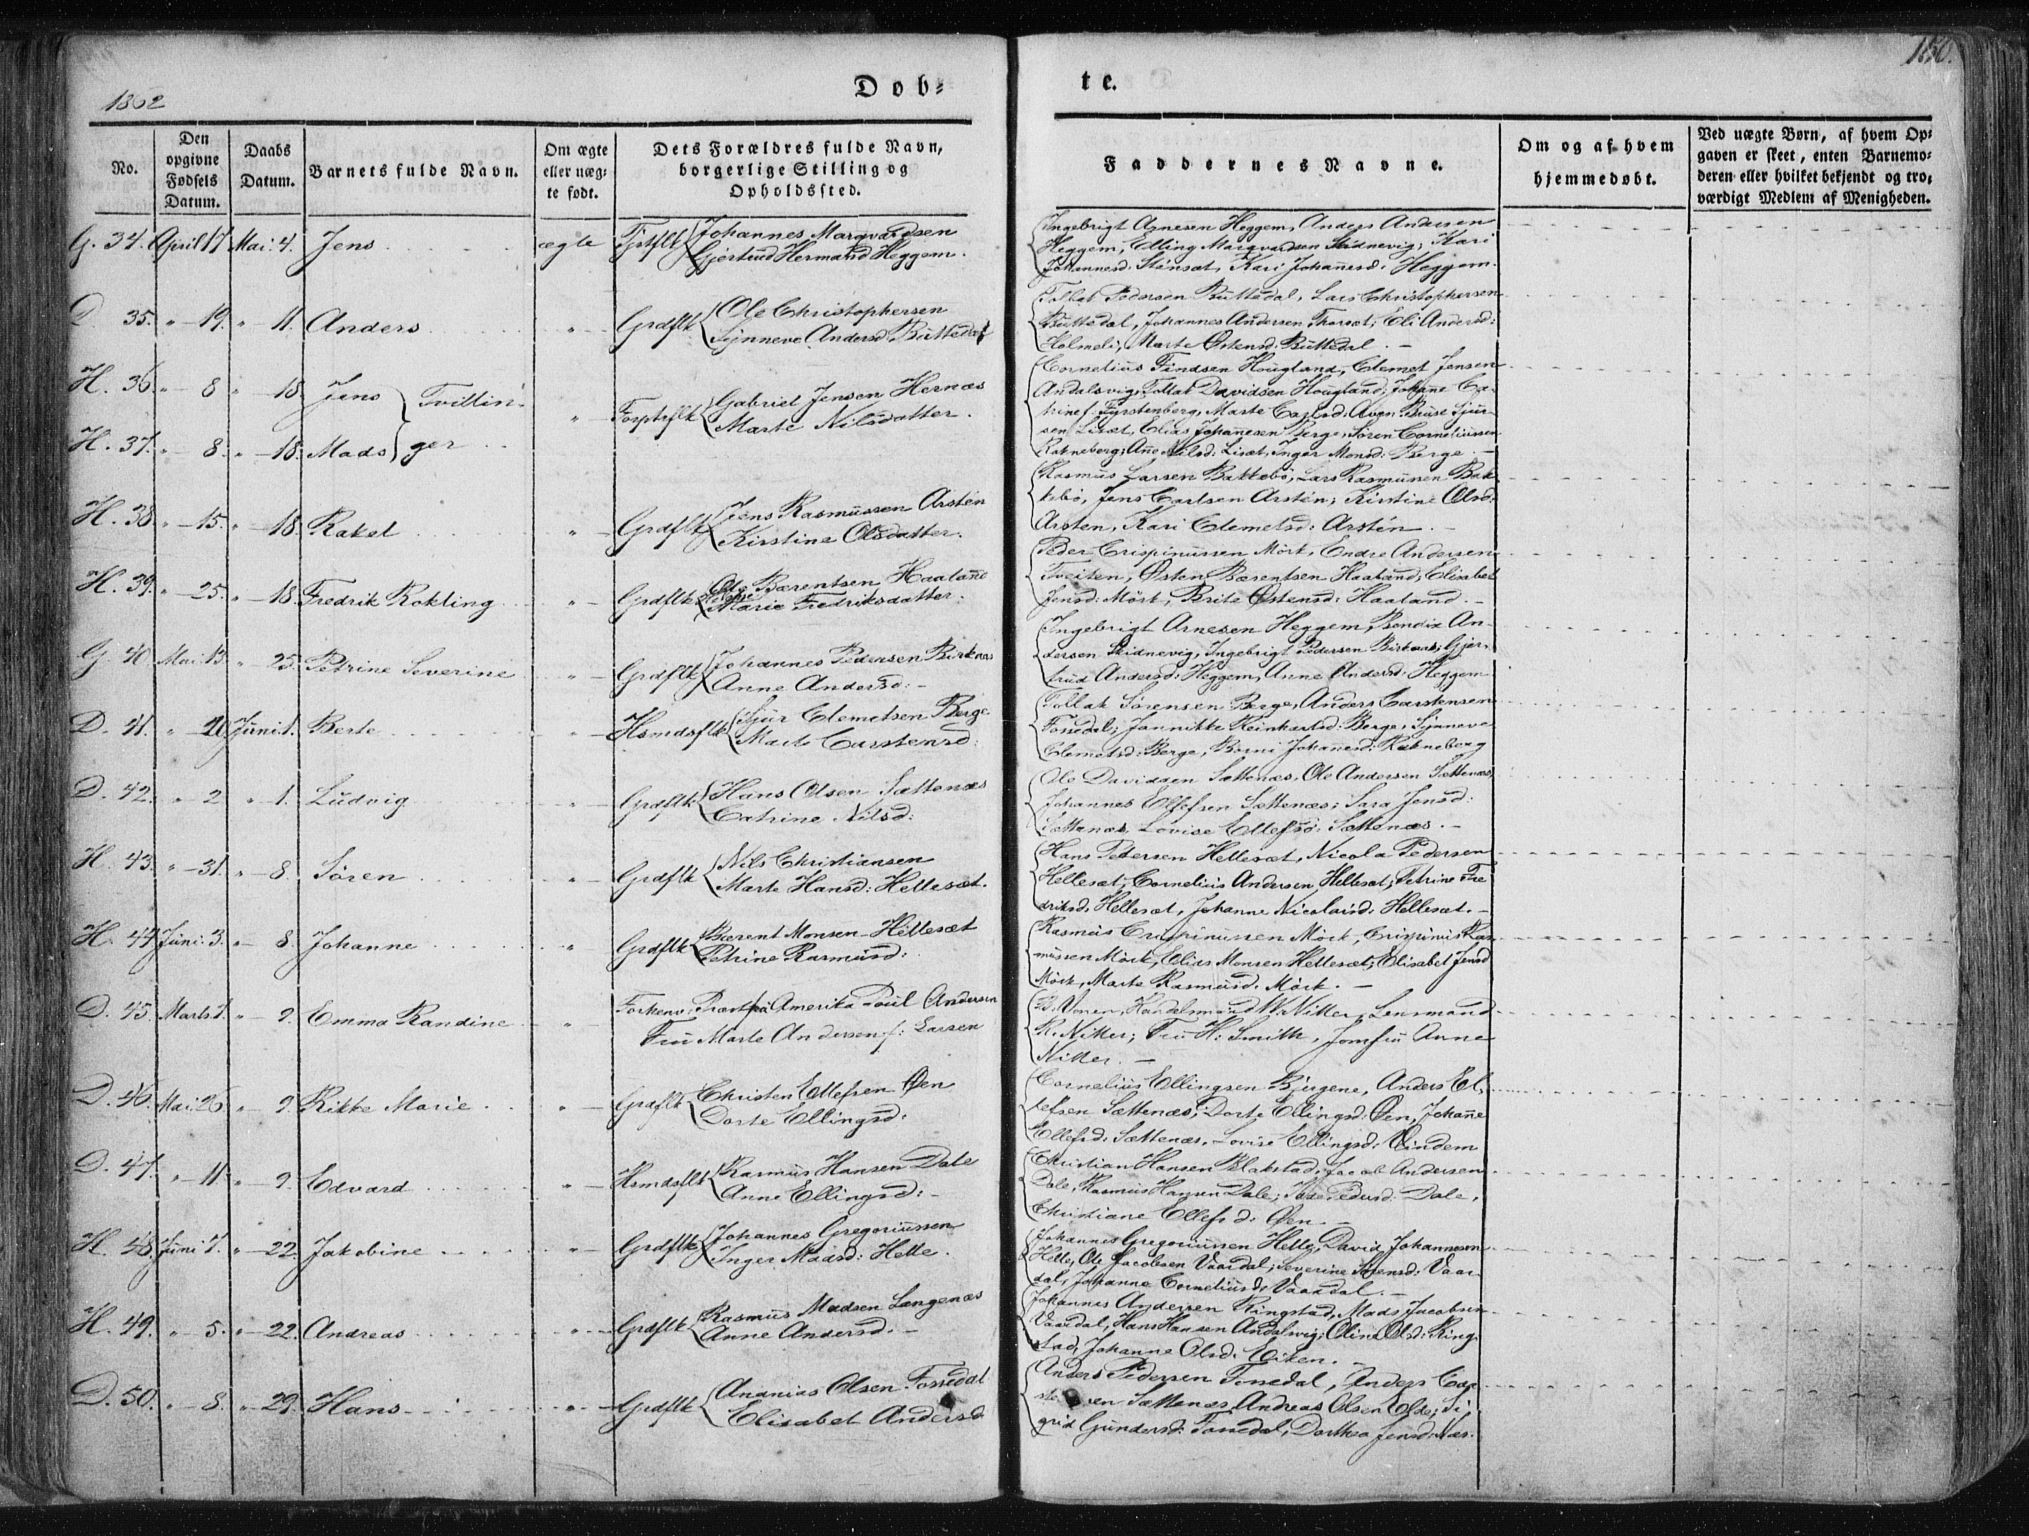 1862
Døb-
te.
150.
No.
Den opgivne Fødsels Datum.
Daabs Datum.
Barnets fulde Navn.
Om ægte eller uægte født.
Dets Forældres fulde Navn, borgerlige Stilling og Opholdssted.
Faddernes Navne.
Om og af hvem hjemmedøbt.
Ved uægte Børn, af hvem Opgaven er skeet, enten Barnemoderen eller hvilket bekjendt og troværdigt Medlem af Menigheden.
G. 34. April 17 Mai 4. Jens ægte
Johannes Marqvardsen
Gjertrud Hermand Heggem.
Ingebrigt Arnesen Heggem, Anders Andersen
Heggem, Elling Marqvardsen Skidnevig; Kari
Johannesd: Stensæt, Kari Johannesd: Heggem.
D 35. " 19. " 11. Anders " Grdflk
Ole Christophersen
Synneve Andersd Büttedal
Tollak Pedersen Büttedal, Lars Christophersen
Büttedal, Johannes Andersen Thorsæt; Eli Andersd:
Holmeli, Marte Østensd: Büttedal. -
H. 36. " 8 " 18 Jens Tvillin-
H. 37. " 8. " 18. Mads ger
" Gabriel Jensen Hernæs
Marte Nilsdatter.
Cornelius Findsen Hougland, Clemet Jensen
Andalsvig, Tollak Davidsen Hougland; Johanne Ca-
trine f. Fyrstenberg, Marte Carlsd:
sen Lisæt, Elias Johannesen Berge, Sören Corneliussen
Rakneberg; Anne Nilsd: Lisæt, Inger Monsd: Berge. -
H. 38. " 15. " 18. Rakel " Grdflk
Jens Rasmüssen Arstén
Kirstine Olsdatter.
Rasmus Larsen Bakkebö, Lars Rasmüssen Bak-
kebö, Jens Carlsen Arstén; Kirstine Olsd:
Arsten, Kari Clemetsd: Arstén. -
H. 39. " 25. " 18. Fredrik Kokling " Grdflk
Ole Bærentsen Haaland
Marie Fredriksdatter.
Peder Crispinussen Mörk, Endre Andersen
Tveiten, Østen Bærentsen Haaland; Elisabet
Jensd: Mörk, Brite Østensd: Haaland. -
G. 40. Mai 13. " 25. Petrine Severine " Grdflk
Johannes Pedersen Birknæs
Anne Andersd: -
Ingebrigt Arnesen Heggem, Bendix An-
dersen Skidnevig, Ingebrigt Pedersen Birknæs; Gjer-
trud Andersd: Heggem, Anne Andersd: Heggem
D. 41. " 20. Juni 1. Berte " Hsmdsflk
Sjur Clemetsen Berge
Marte Carstensd:
Tollak Sörensen Berge, Anders Carstensen
Fossedal; Jannikke Reinhartsd: Berge, Synneve
Clemetsd: Berge, Börni Johannesd: Rakneberg
D. 42. " 2 " 1. Ludvig " Grdflk
Hans Olsen Sættenæs
Catrine Nilsd:
Ole Davidsen Sættenæs, Ole Andersen Sættenæs,
Johannes Ellefsen Sættenæs; Sara Jensd:
Sættenæs, Lovise Ellefsd: Sættenæs. -
H. 43. " 31. " 8. Sören " Grdflk
Nils Christiansen
Marte Hansd: Hellesæt.
Hans Petersen Hellesæt, Nicolai Pedersen
Hellesæt, Cornelius Andersen Hellesæt; Petrine Fre-
driksd. Hellesæt, Johanne Nicolaisd. Hellesæt. -
H. 44. Juni 3. " 8. Johanne " Grdflk
Bærent Monsen Hellesæt
Petrine Rasmusd:
Rasmus Crispinussen Mörk, Crispinus Ras-
müssen Mörk, Elias Monsen Hellesæt; Elisabet Jensd
Mörk, Marte Rasmusd. Mörk. -
D. 45. Marts 7. " 9. Emma Randine "
Forhenv: Præst fra Amerika Poul Andersen
Frü Marte Andersen f: Larsen
Handelsmand W. Nitter, Lensmand
R. Nitter; Frü H: Smith, Jomfrü Anne
Nitter. -
D. 46. Mai 26 " 9. Rikke Marie " Grdflk
Christen Ellefsen Øen
Dorte Ellingsd:
Cornelius Ellingsen Bjergene, Anders El-
lefsen Sættenæs; Dorte Ellingsd: Øen, Johanne
Ellefsd. Sættenæs, Lovise Ellingsd: Vindem
D. 47. " 11. " 9. Edvard " Hsmdsflk
Rasmus Hansen Dale
Anne Ellingsd: -
Christian Hansen Blakstad, Jacob Andersen
Dale, Rasmus Hansen Dale; Pedersd: Dale,
Christiane Ellefsd: Øen -
H. 48. Juni 7. " 22. Jakobine " Grdflk
Johannes Gregoriussen
Inger Madsd: Helle.
Johannes Gregoriussen Helle, David Johannesen
Helle, Ole Jacobsen Vaardal; Severine Sörensd: Vaar-
dal, Johanne Corneliusd. Vaardal. -
H. 49. " 5. " 22. Andreas " Grdflk
Rasmus Madsen Langenæs
Anne Andersd. -
Johannes Andersen Ringstad, Mads Jacobsen
Vaardal, Hans Hansen Andalsvig; Olina Olsd: Ring-
stad, Johanne Olsd: Eiken. -
D. 50. " 8. " 29. Hans " Grdflk
Ananias Olsen Fossedal
Elisabet Andersd
Anders Pedersen Fossedal, Anders Car-
sen Sættenæs, Andreas Olsen Olde; Si-
grid Gundersd: Fossedal, Dorthea Jensd: